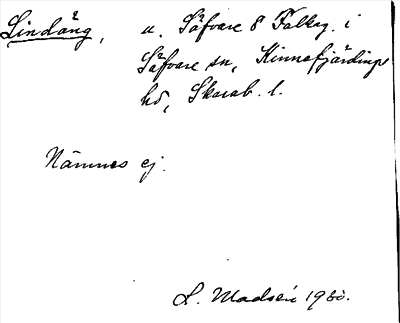 Lindäng, u. Såfvare 8 Falkg. i
Såfvare sn, Kinnefjärdings
hd, Skarab. l.
Nämnes ej.
L. Madsén 1960.